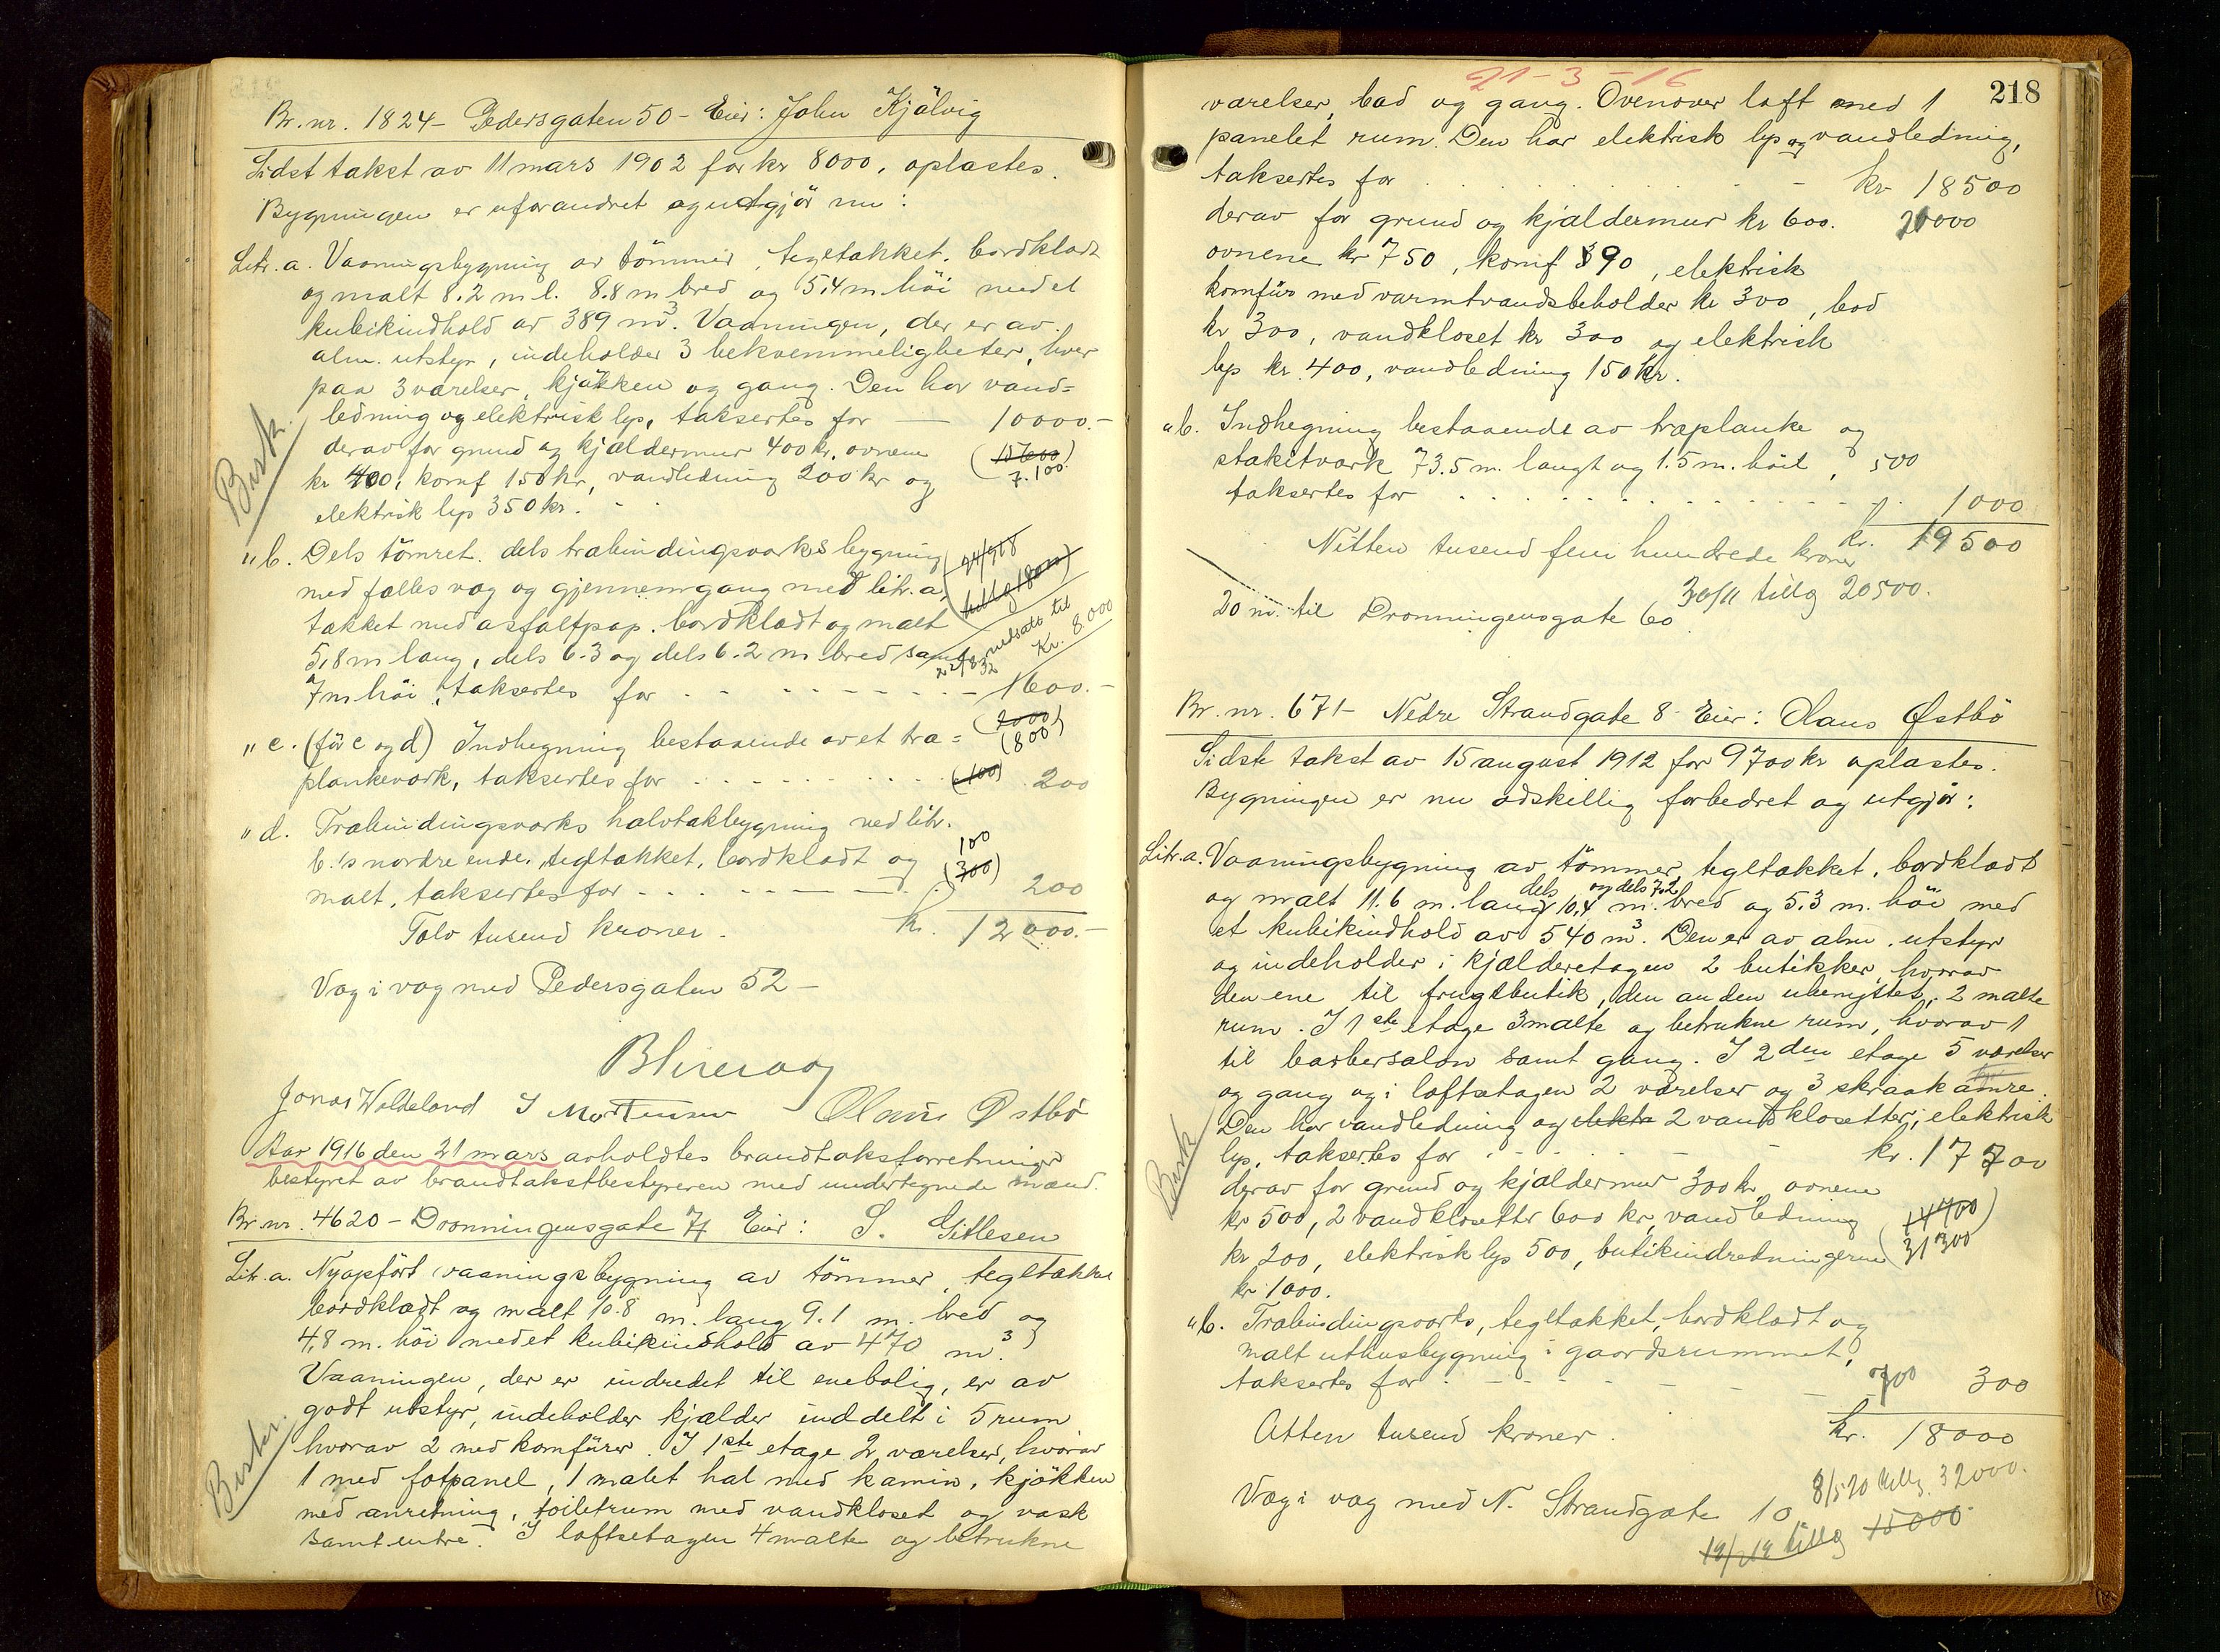 Br. nr. 1824 - Pedersgaten 50 - Eier: John Kjölvig
Sidst takst av 11 mars 1902 for kr 8000, oplæstes.
Bygningen er uforandret og utgjör nu:
Litr. a. Vaaningsbygning av tömmer, tegltækket, bordklædt
og malt 8.2 m l. 8.8 m bred og 5,4 m höi med et
kubikindhold av 389 m³. Vaaningen, der er av
alm. utstyr, indeholder 3 bekvemmeligheter, hver
paa 3 værelser, kjökken og gang. Den har vand=
ledning og elektrisk lys, taksertes for — 10000.-
derav for grund og kjældermur 400 kr, ovnene (15600)
kr 400, komf 150 kr, vandledning 200 kr og 7.100
elektrisk lys 350 kr.
Busk.
" b. Dels tömret, dels træbindingsverks bygning
med fælles væg og gjennemgang med litr. a,
tækket med asfaltpap, bordklædt og malt
5,8 m lang, dels 6.3 og dels 6.2 m bred samt
7 m höi, taksertes for - - - - - 1600.-
(24/9 18
tillæg 18000)
22/8 32 nedsatt til
Kr. 8.000
(2000)
(800)
" c. (för c og d) Indhegning bestaaende av et træ=
plankeverk, taksertes for - - - - (400) 200
" d. Træbindingsverks halvtakbygning ved litr.
b.'s nordre ende, tegltækket, bordklædt og 100
malt, taksertes for - - - - (300) 200
Tolv tusend kroner. kr. 12000.-
Væg i væg med Pedersgaten 52 -
Jonas Woldeland I Mortensen Olaus Østbö
Aar 1916 den 21 mars avholdtes brandtakstforretninger
bestyret av brandtakstbestyreren med undertegnede mænd.
Br. nr. 4620 - Dronningensgate 71 Eier: S. Gitlesen
Litr. a. Nyopfört vaaningsbygning av tömmer, tegltækket
bordklædt og malt 10.8 m. lang 9.1 m. bred og
4,8 m. höi med et kubikindhold av 470 m³.
Vaaningen, der er indredet til enebolig, er av
godt utstyr, indeholder kjælder inddelt i 5 rum
hvorav 2 med komfürer. I 1ste etage 2 værelser, hvorav
1 med fotpanel, 1 malet hal med kamin, kjökken
med anretning, toiletrum med vandkloset og vask
samt entre. I loftsetagen 4 malte og betrukne
21-3-16
218
værelser, bad og gang. Ovenover loft med 1
panelet rum. Den har elektrisk lys og vandledning,
taksertes for . . . . . . - kr 18500
derav for grund og kjældermur kr 600. 20000
ovnene kr 750, komf 390, elektrisk
komfür med varmtvandsbeholder kr 300, bad
kr 300, vandkloset kr 300 og elektrisk
lys kr 400, vandledning 150 kr.
" b. Indhegning bestaaende av træplanke og
stakitværk 73.5 m. langt og 1.5 m. höit, 500
taksertes for . . . . . . - 1000
Nitten tusend fem hundrede kroner kr. 19500
30/11 tillæg 20500.
20 m. til Dronningensgate 60
Br. nr. 671 - Nedre Strandgate 8 - Eier: Olaus Østbö
Sidste takst av 15 august 1912 for 9700 kr oplæstes.
Bygningen er nu adskillig forbedret og utgjör:
Litr. a. Vaaningsbygning av tömmer, tegltækket, bordklædt
og malt 11.6 m. lang dels 10,4 og dels 7.2 m. bred og 5.3 m. höi med
et kubikindhold av 540 m³. Den er av alm. utstyr
og indeholder i kjælderetagen 2 butikker, hvorav
den ene til frugtbutik, den anden ubenyttet, 2 malte
rum. I 1ste etage 3 malte og betrukne rum, hvorav 1
til barbersalon samt gang. I 2den etage 5 værelser
og gang og i loftsetagen 2 værelser og 3 skraakamre.
Den har vandledning og elektr 2 vandklosetter, elektrisk
lys, taksertes for - - - - kr. 17700
Busk
derav for grund og kjældermur 300 kr, ovnene
kr 500, 2 vandklosetter 600 kr, vandledning (14700)
kr 200, elektrisk lys 500, butikindretningerne 31300
kr 1000.
" b. Træbindingsverks, tegltækket, bordklædt og
malt uthusbygning i gaardsrummet,
taksertes for - - - - 700 300
Atten tusend kroner. kr. 18000
8/5 20 tillæg 32000.
Væg i væg med N. Strandgate 10
tillæg 15000